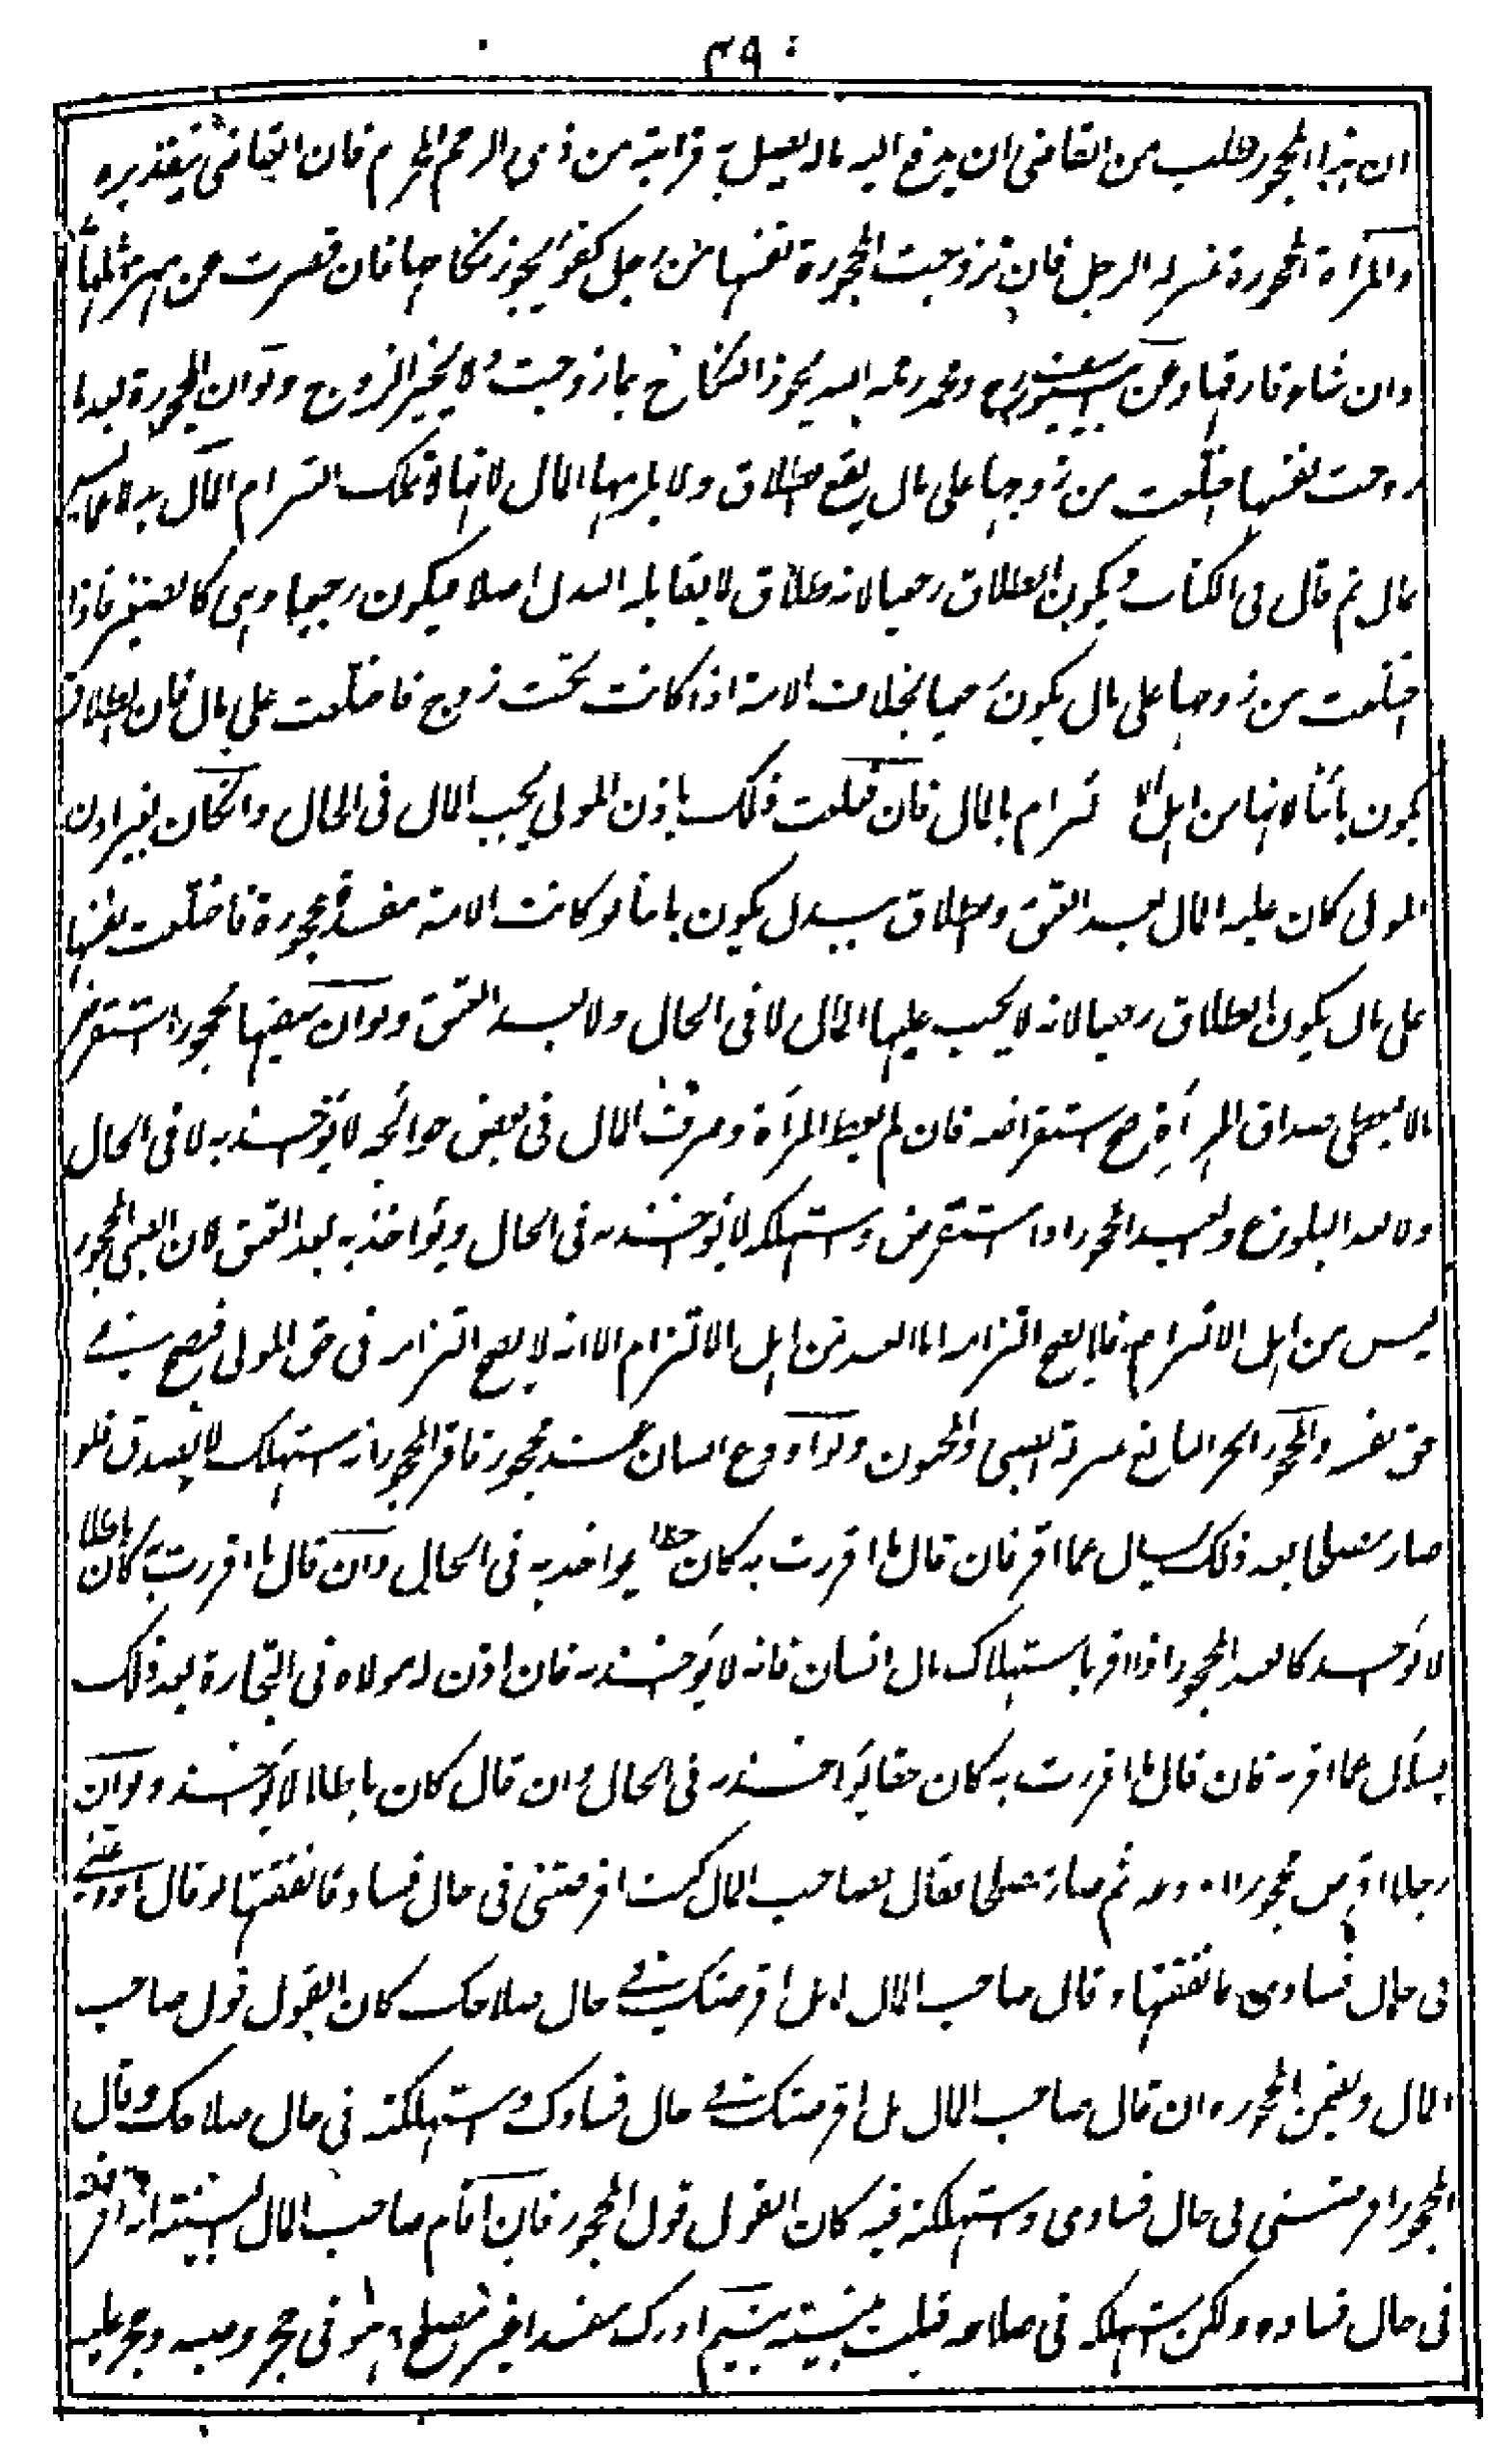 ٣٩٠
ان هذا المحجور طلب من القاضى ان يدفع اليه ما لا يصل به قرابته من ذى الرحم المحرم فان القاضى
والمرأة المحجورة بمنزلة الرجل فان تزوجت المحجورة نفسها من رجل كفو يجوز نكاحها فان قصرت عن مهر مثلها
وان شاء فارقها وعن ومحمد رحمه الله يجوز النكاح بما زوجت ولا يخير الزوج ولو ان المحجورة بعد ما
زوجت نفسها اختلعت من زوجها على مال يقع الطلاق ولا يلزمها المال لانها لا تملك التزام المال بدلا عما ليس
بمال ثم قال فى الكتاب ويكون الطلاق رجعيا لانه طلاق لا يقابله البدل اصلا فيكون رجعيا وهى كالصغيرة اذا
اختلعت من زوجها على مال يكون رجعيا بخلاف الامة اذا كانت تحت زوج فاختلعت على مال فان الطلاق
يكون بائنا لانها من اهل الا لتزام بالمال فان فعلت ذلك باذن المولى يجب المال فى الحال وان كان بغير اذن
المولى كان عليه المال بعد العتق والطلاق ببدل يكون بائنا ولو كانت الامة مفسدة محجورة فاختلعت نفسها
على مال يكون الطلاق رجعيا لانه لا يجب عليها المال لا فى الحال ولا بعد العتق ولو ان سفيها محجورا استقرض
مالا ليعطى صداق المرأة صح استقراضه فان لم يعط المرأة وصرف المال فى بعض حوائجه لا يؤخذ به لا فى الحال
ولا بعد البلوغ والعبد المحجور اذا استقرض واستهلكه لا يؤخذ به فى الحال ويؤاخذ به بعد العتق لان الصبى المحجور
ليس من اهل الالتزام فلا يصح التزامه اما العبد من اهل الالتزام الا انه لا يصح التزامه فى حق المولى فيصح فى
حق نفسه والمحجور الحر البالغ بمنزلة الصبى والمجنون ولو اودع انسان عند محجور فاقر المحجور انه استهلك لا يصدق فلو
صار مصلحا بعد ذلك يسأل عما اقر فان قال ما اقررت به كان حقا يؤاخذ به فى الحال وان قال ما اقررت به كان باطلا
لا يؤخذ كالعبد المحجور اذا اقر باستهلاك مال انسان فانه لا يؤخذ به فان اذن له مولاه فى التجارة بعد ذلك
يسأل عما اقر به فان قال ما اقررت به كان حقا يؤاخذ به فى الحال وان قال كان باطلا لا يؤخذ ولو ان
رجلا اقرض محجورا او اودعه ثم صار مصلحا فقال لصاحب المال كنت اقرضتنى فى حال فسادى فانفقتها او قال اودعتنى
فى حال فسادى فانفقتها وقال صاحب المال لا بل اقرضتك فى حال صلاحك كان القول قول صاحب
المال ويضمن المحجور وان قال صاحب المال بل اقرضتك فى حال فسادك واستهلكته فى حال صلاحك وقال
المحجور اقرضتنى فى حال فسادى واستهلكته فيه كان القول قول المحجور فان اقام صاحب المال البينة انه اقرضه
فى حال فساده ولكن استهلكه فى صلاحه قبلت بينته يتيم ادرك مفسدا غير مصلح وهو فى حجر وصيه وحجر عليه